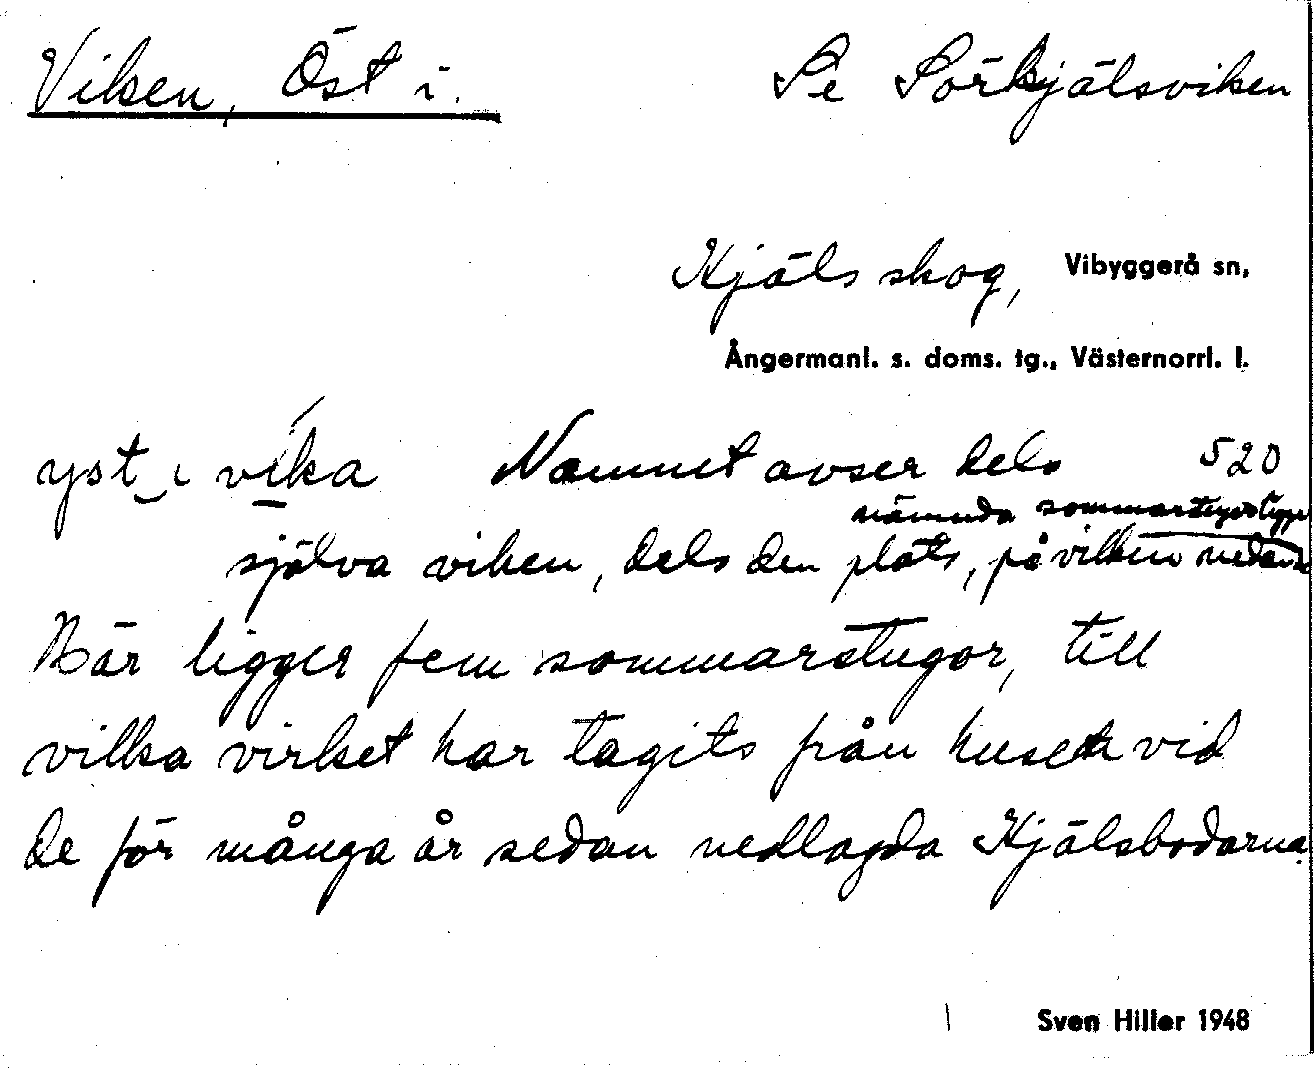 Viken, Öst i.
Se Sörkjälsviken
Kjälsskog, Vibyggerå sn,
Ångermanl. s. doms. tg., Västernorrl. l.
yst i vika Namnet avser dels 520
nämnda sommarstugor ligga
själva viken, dels den plats, på vilken nedan
Här ligger fem sommarstugor, till
vilka virket har tagits från husen vid
de för många år sedan nedlagda Kjälsbodarna.
Sven Hiller 1948